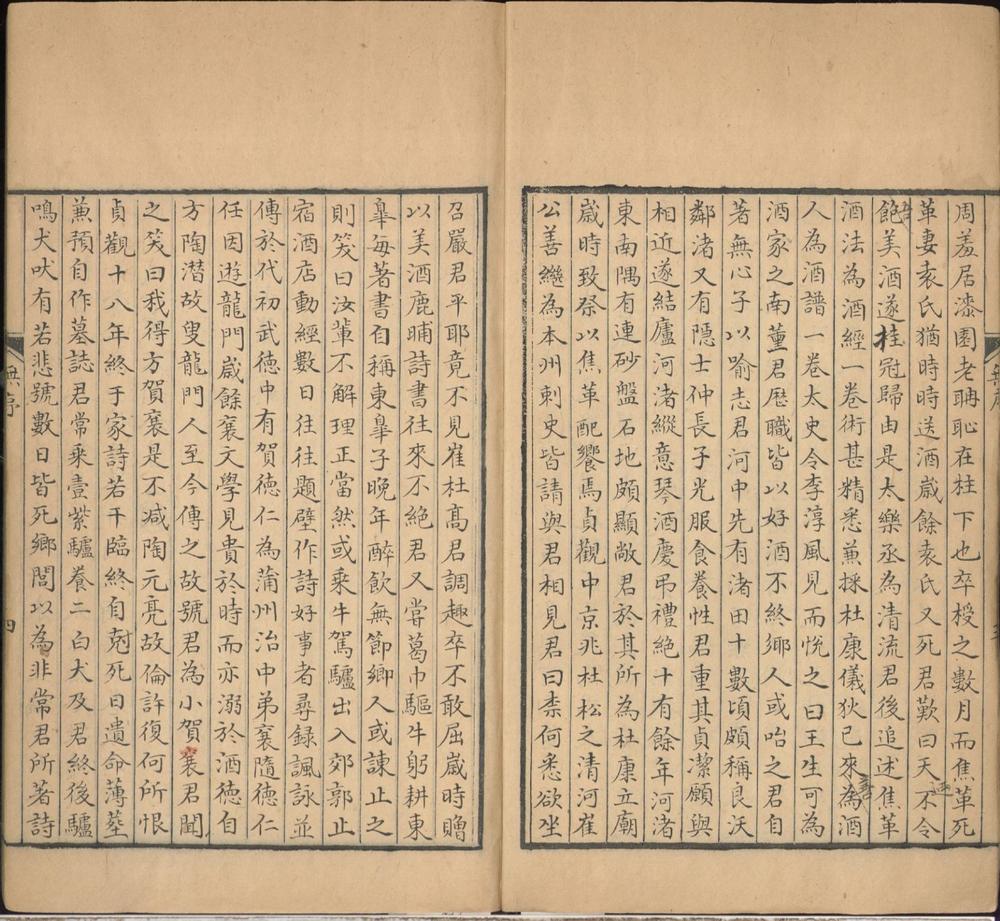 周羞居漆園老聃恥在柱下也卒授之數月而焦革死
革妻袁氏猶時時送酒歲餘袁氏又死君歎曰天不令
飽美酒遂桂冠歸由是太樂丞為清流君後追述焦革
酒法為酒經一卷術甚精悉兼採杜康儀狄已來為酒
人為酒譜一卷太史令李淳風見而悅之曰王生可為
酒家之南董君歷職皆以好酒不終鄉人或咍之君自
著無心子以喻志君河中先有渚田十數頃頗稱良沃
鄰渚又有隱士仲長子光服食養性君重其貞潔願與
相近遂結廬河渚縱意琴酒慶弔禮絕十有餘年河渚
東南隅有連砂盤石地頗顯敞君於其所為杜康立廟
歲時致祭以焦革配饗焉貞觀中京兆杜松之清河崔
公善繼為本州刺史皆請與君相見君曰柰何悉欲坐
召嚴君平耶竟不見崔杜高君調趣卒不敢屈歲時贈
以美酒鹿脯詩書往來不絕君又嘗葛巾驅牛躬耕東
皋每著書自稱東皋子晚年醉飲無節鄉人或諫止之
則笑曰汝輩不解理正當然或乘牛駕驢出入郊郭止
宿酒店動經數日往往題壁作詩好事者尋錄諷詠並
傳於代初武德中有賀德仁為蒲州治中弟襄隨德仁
任因遊龍門歲餘襄文學見貴於時而亦溺於酒德自
方陶潛故叟龍門人至今傳之故號君為小賀襄君聞
之笑曰我得方賀襄是不減陶元亮故倫許復何所恨
貞觀十八年終于家詩若干臨終自尅死日遺命薄葬
兼預自作墓誌君常乘壹紫驢養二白犬及君終後驢
鳴犬吠有若悲號數日皆死鄉閭以為非常君所著詩
無序
四